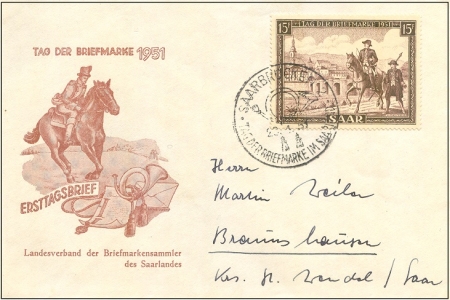 TAG DER BRIEFMARKE 1951
15F TAG DER BRIEFMARKE 1951 15F
SAAR
SAARBRÜCKEN
TAG DER BRIEFMARKE IM SAARLAND
ERSTTAGSBRIEF
Landesverband der Briefmarkensammler
des Saarlandes
Herrn
Martin Weiler
Braunshausen
Krs. St. Wendel / Saar